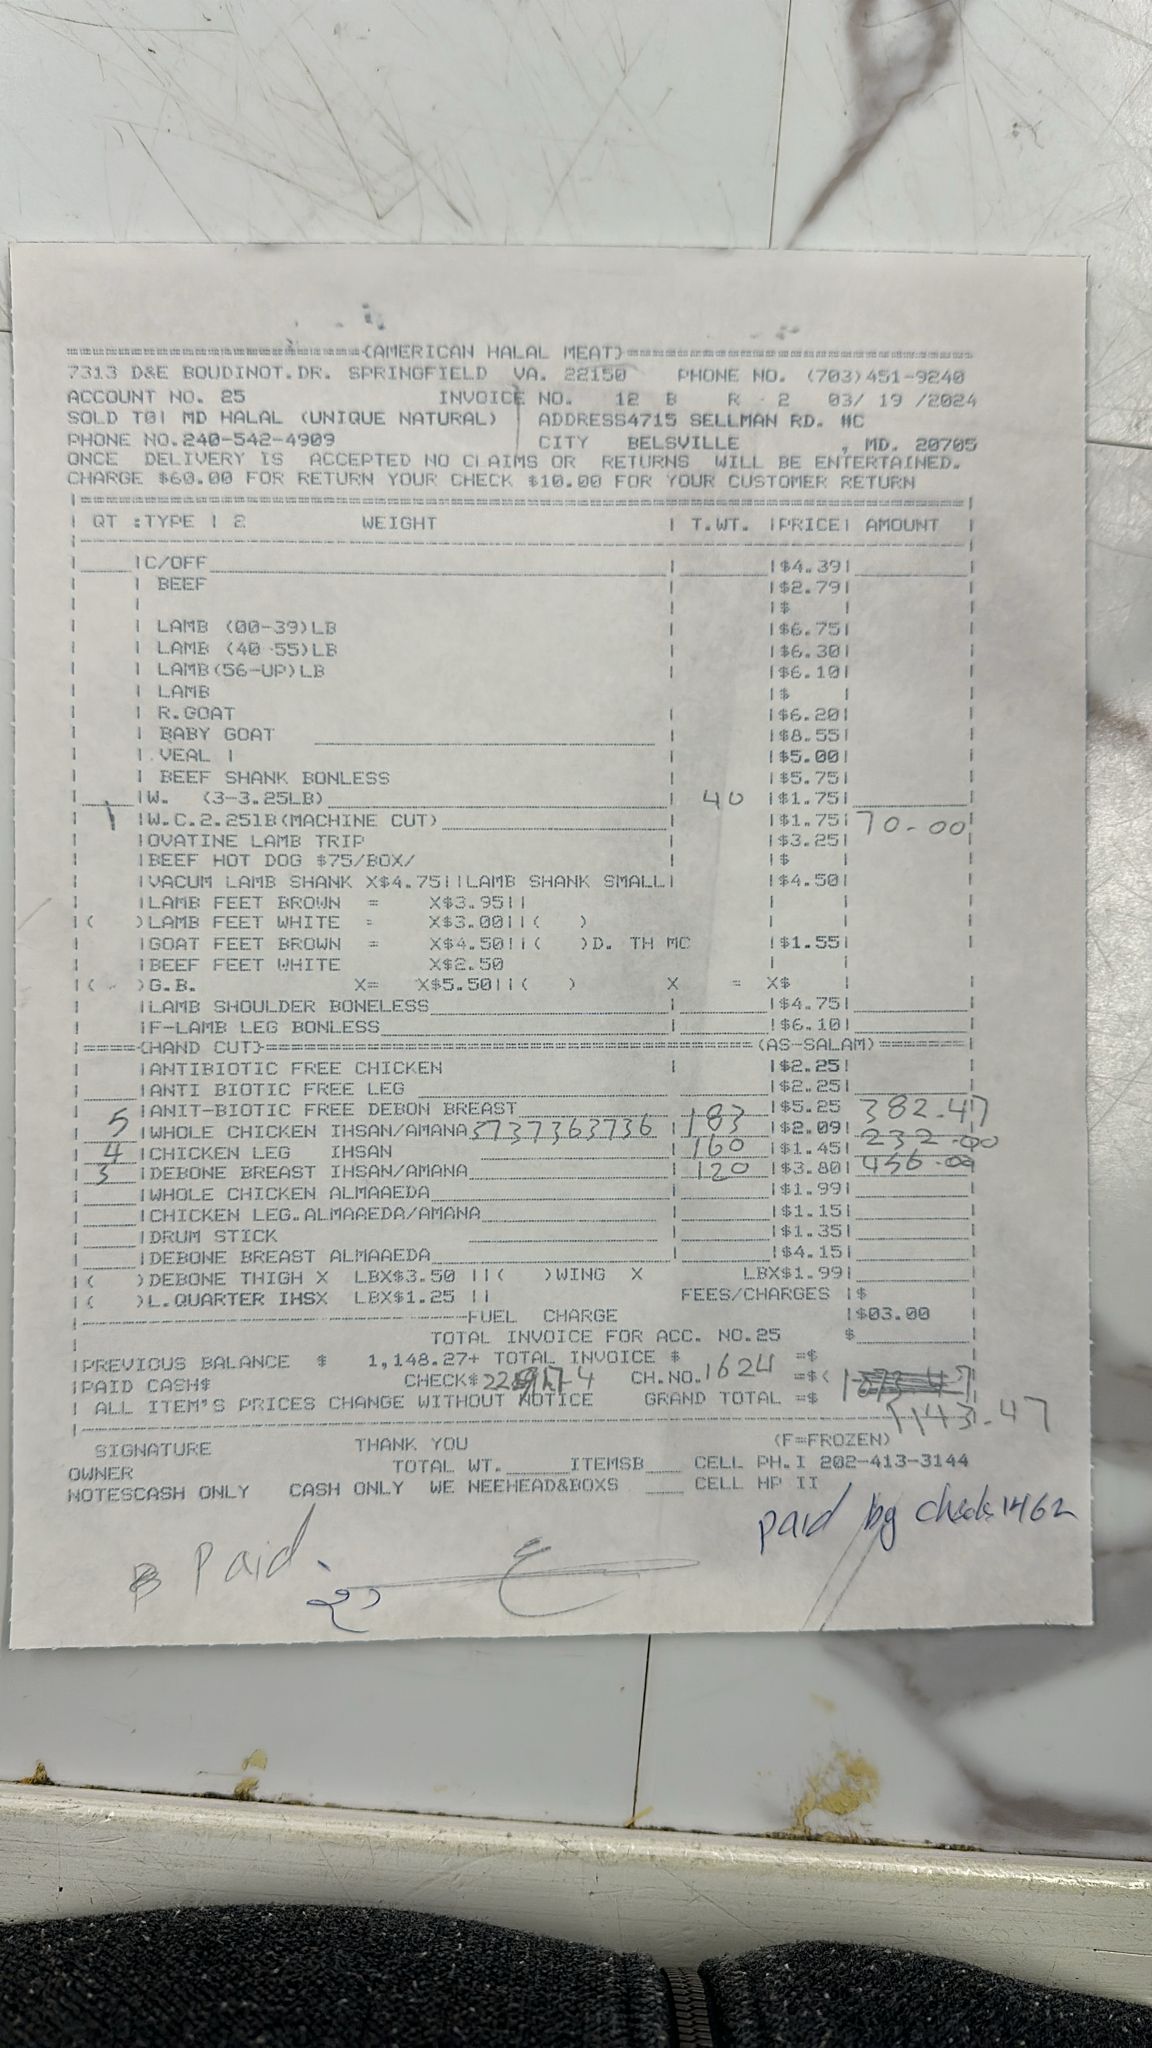 (AMERICAN HALAL MEAT)
7313 D&E BOUDINOT.DR. SPRINGFIELD VA. 22150 PHONE NO. (703)451-9240
ACCOUNT NO. 25 INVOICE NO. 12 B R 2 03/ 19 /2024
SOLD TO| MD HALAL (UNIQUE NATURAL) | ADDRESS4715 SELLMAN RD. #C
PHONE NO.240-542-4909 CITY BELSVILLE , MD. 20705
ONCE DELIVERY IS ACCEPTED NO CLAIMS OR RETURNS WILL BE ENTERTAINED.
CHARGE $60.00 FOR RETURN YOUR CHECK $10.00 FOR YOUR CUSTOMER RETURN
QT :TYPE | 2 WEIGHT | T.WT. |PRICE| AMOUNT
|C/OFF |$4.39|
| BEEF |$2.79|
|$ |
| LAMB (00-39)LB |$6.75|
| LAMB (40-55)LB |$6.30|
| LAMB(56-UP)LB |$6.10|
| LAMB |$ |
| R.GOAT |$6.20|
| BABY GOAT |$8.55|
| VEAL | |$5.00|
| BEEF SHANK BONLESS |$5.75|
|W. (3-3.25LB) 40 |$1.75|
1 |W.C.2.25lB(MACHINE CUT) |$1.75| 70.00
|OVATINE LAMB TRIP |$3.25|
|BEEF HOT DOG $75/BOX/ |$ |
|VACUM LAMB SHANK X$4.75||LAMB SHANK SMALL| |$4.50|
|LAMB FEET BROWN = X$3.95||
|( )LAMB FEET WHITE = X$3.00||( )
|GOAT FEET BROWN = X$4.50||( )D. TH MC |$1.55|
|BEEF FEET WHITE X$2.50
|( )G.B. X= X$5.50||( ) X = X$ |
|LAMB SHOULDER BONELESS |$4.75|
|F-LAMB LEG BONLESS |$6.10|
|====(HAND CUT)====(AS-SALAM)====|
|ANTIBIOTIC FREE CHICKEN |$2.25|
|ANTI BIOTIC FREE LEG |$2.25|
|ANIT-BIOTIC FREE DEBON BREAST |$5.25
5 |WHOLE CHICKEN IHSAN/AMANA 3737363736 183 |$2.09| 382.47
4 |CHICKEN LEG IHSAN 160 |$1.45| 232.00
3 |DEBONE BREAST IHSAN/AMANA 120 |$3.80| 456.00
|WHOLE CHICKEN ALMAAEDA |$1.99|
|CHICKEN LEG.ALMAAEDA/AMANA |$1.15|
|DRUM STICK |$1.35|
|DEBONE BREAST ALMAAEDA |$4.15|
|( )DEBONE THIGH X LBX$3.50 ||( )WING X LBX$1.99|
|( )L.QUARTER IHSX LBX$1.25 || FEES/CHARGES |$
FUEL CHARGE |$03.00
TOTAL INVOICE FOR ACC. NO.25 $
|PREVIOUS BALANCE $ 1,148.27+ TOTAL INVOICE $ =$
|PAID CASH$ CHECK$ CH.NO. 1624 =$(
| ALL ITEM'S PRICES CHANGE WITHOUT NOTICE GRAND TOTAL =$ 1143.47
SIGNATURE THANK YOU (F=FROZEN)
OWNER TOTAL WT. ITEMSB CELL PH.I 202-413-3144
NOTESCASH ONLY CASH ONLY WE NEEHEAD&BOXS CELL HP II
paid by check 1462
Paid